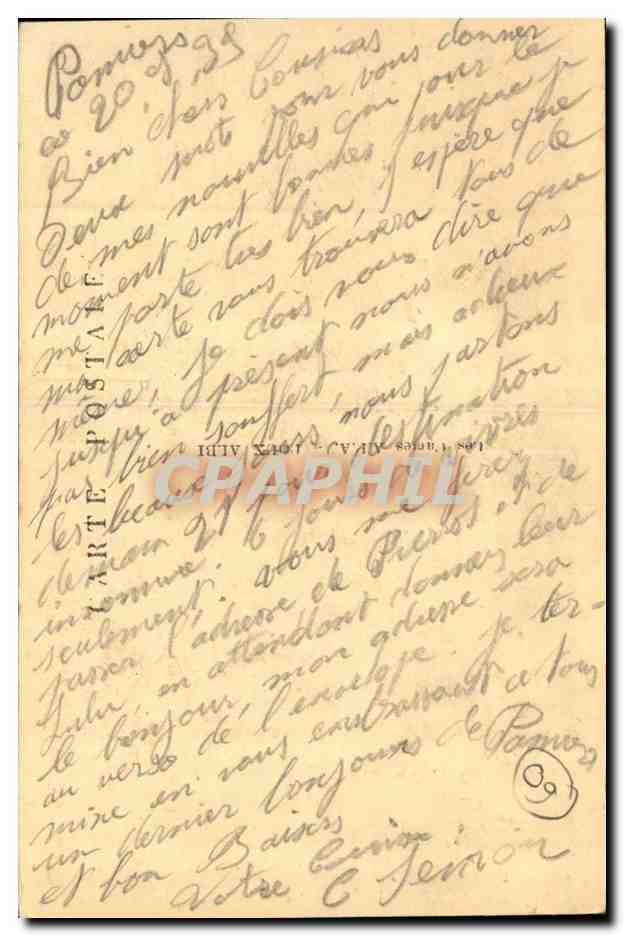 Pamiers
ce 20.9.39
Bien chers Cousins
Deux mots pour vous donner
de mes nouvelles qui pour le
moment sont bonnes puisque je
me porte tres bien, j'espère que
ma carte vous trouvera tous de
même, je dois vous dire que
jusqu'à présent nous n'avons
pas bien souffert mais adieux
les beaux jours nous partons
demain 21 pour destination
inconnue. 6 jours de vivres
seulement. Vous me ferez
passer l'adresse de Pierrot et de
Lulu, en attendant donnez leur
le bonjour, mon adresse sera
au verso de l'envelope. je ter-
mine en vous embrassant a tous
un dernier bonjours de Pamiers
et bon Baisers
Votre Cousin
09
CARTE POSTALE
Les Cartes APAJ - POUX ALBI
CPAPHIL